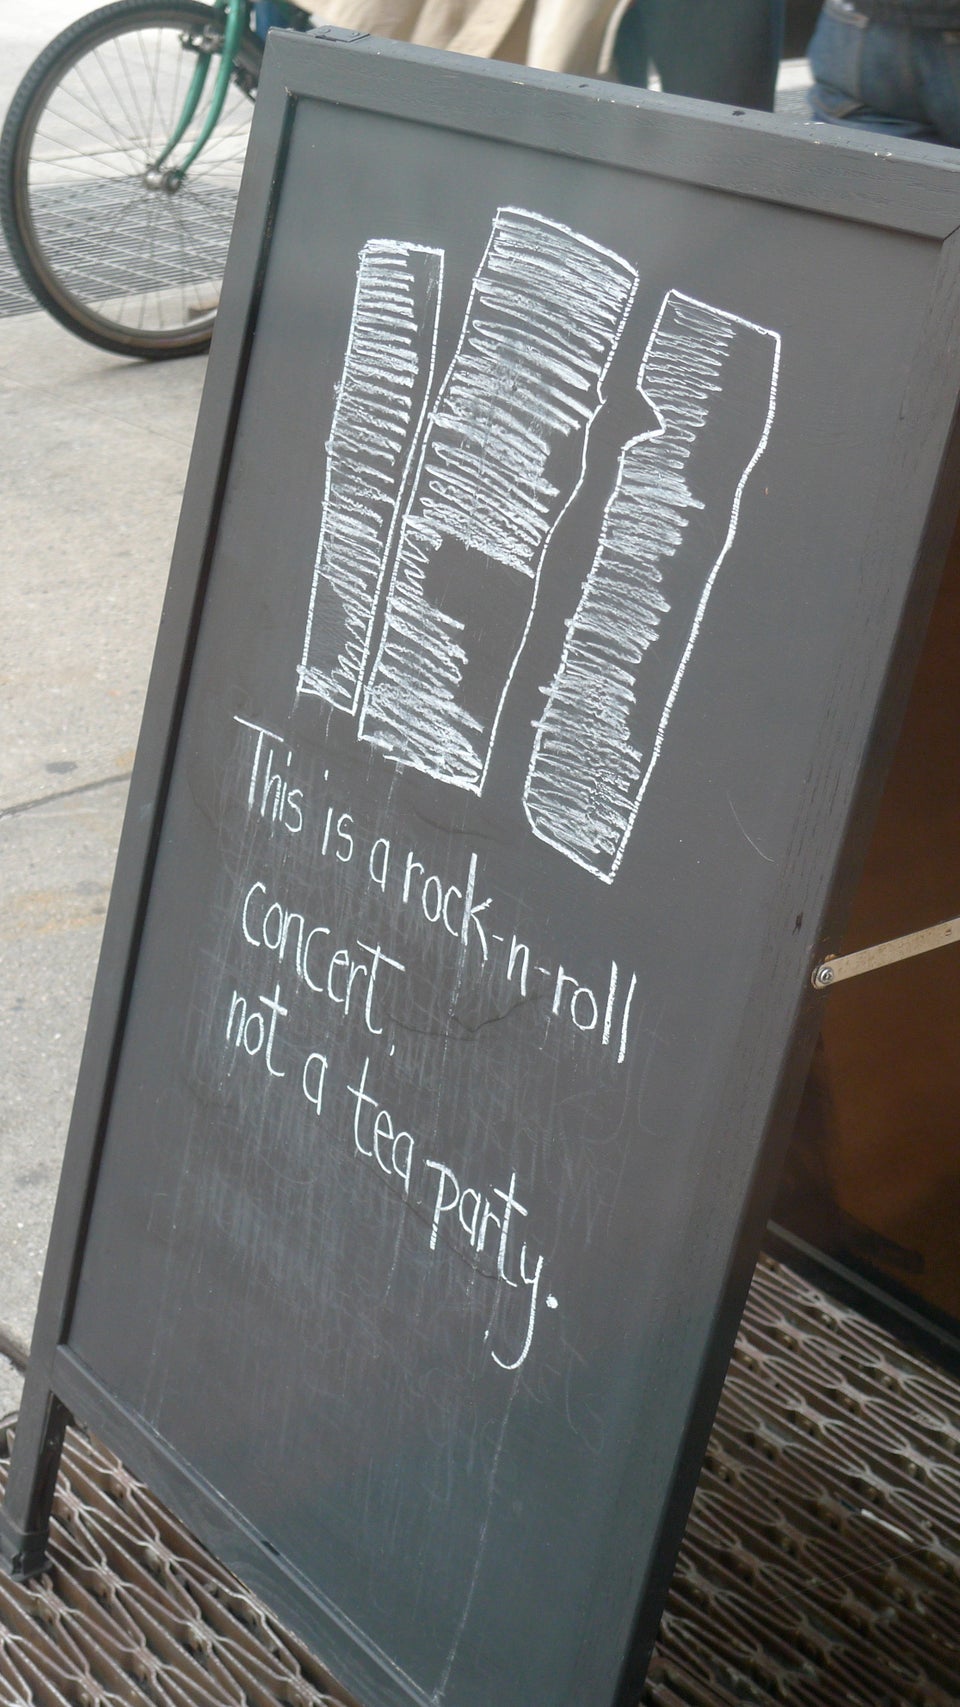 This is a rock-n-roll
concert,
not a tea party.